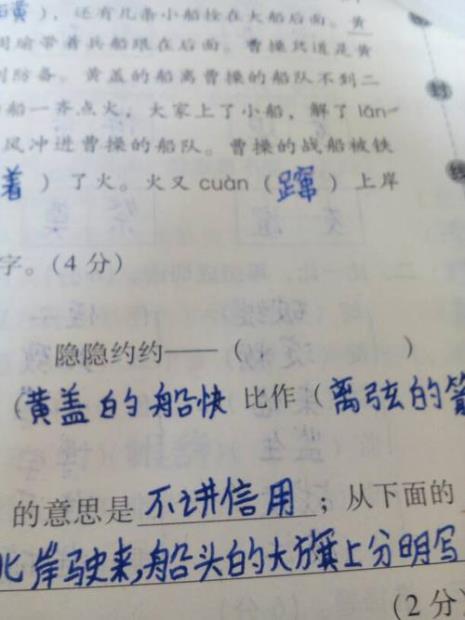 ），还有几条小船拴在大船后面。黄
周瑜带着兵船跟在后面。曹操只道是黄
防备。黄盖的船离曹操的船队不到二
船一齐点火，大家上了小船，解了lǎn
风冲进曹操的船队。曹操的战船被铁
着）了火。火又cuàn（蹿）上岸
字。（4分）
隐隐约约——（ ）
（黄盖的船快 比作（离弦的箭
的意思是 不讲信用 ；从下面的
北岸驶来,船头的大旗上分明写
（2分